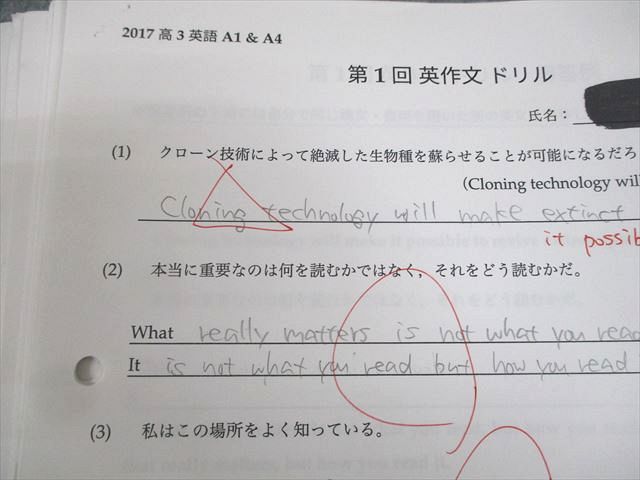 2017 高 3 英語 A1 & A4
第 1 回 英作文 ドリル
氏名：
(1) クローン技術によって絶滅した生物種を蘇らせることが可能になるだろ
(Cloning technology will
Cloning technology will make extinct
it possib
(2) 本当に重要なのは何を読むかではなく，それをどう読むかだ。
What really matters is not what you read
It is not what you read but how you read
(3) 私はこの場所をよく知っている。